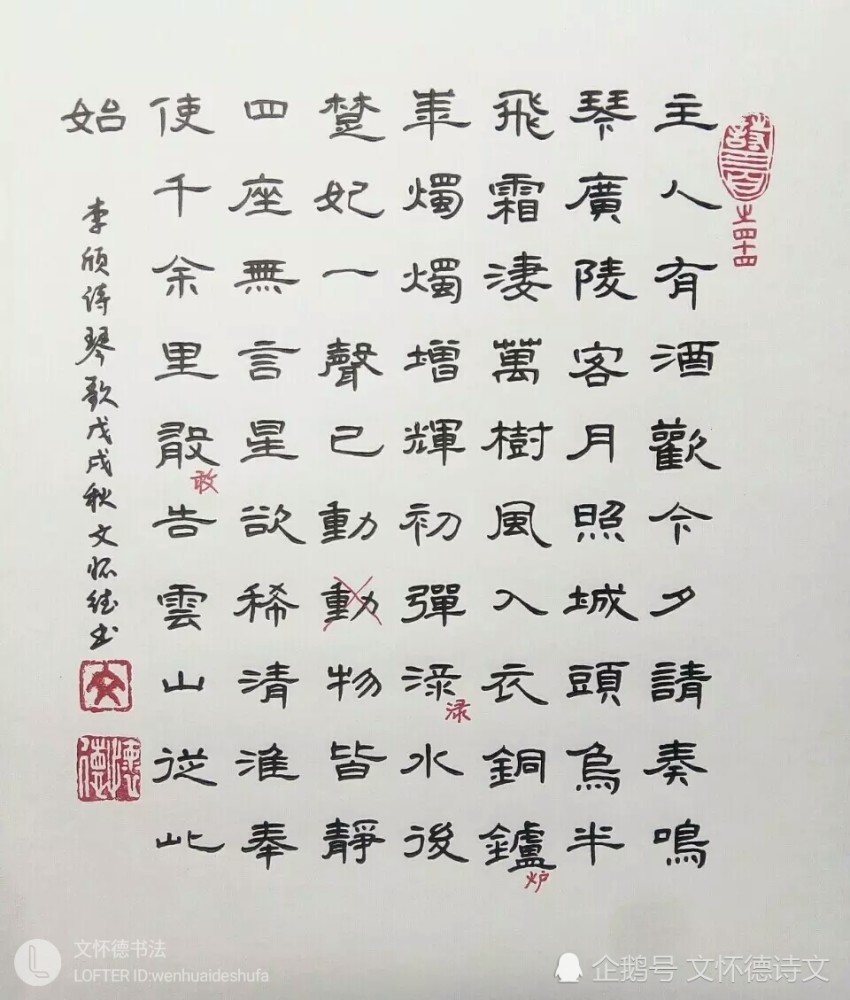 詩三百
之四十四
主人有酒歡今夕請奏鳴
琴廣陵客月照城頭烏半
飛霜淒萬樹風入衣銅鑪
炉
華燭燭增輝初彈淥水後
渌
楚妃一聲已動動物皆靜
四座無言星欲稀清淮奉
使千余里敢告雲山從此
敢
始
李颀诗琴歌戊戌秋文怀德书
文
懷德
文怀德书法
LOFTER ID:wenhuaideshufa
企鹅号 文怀德诗文